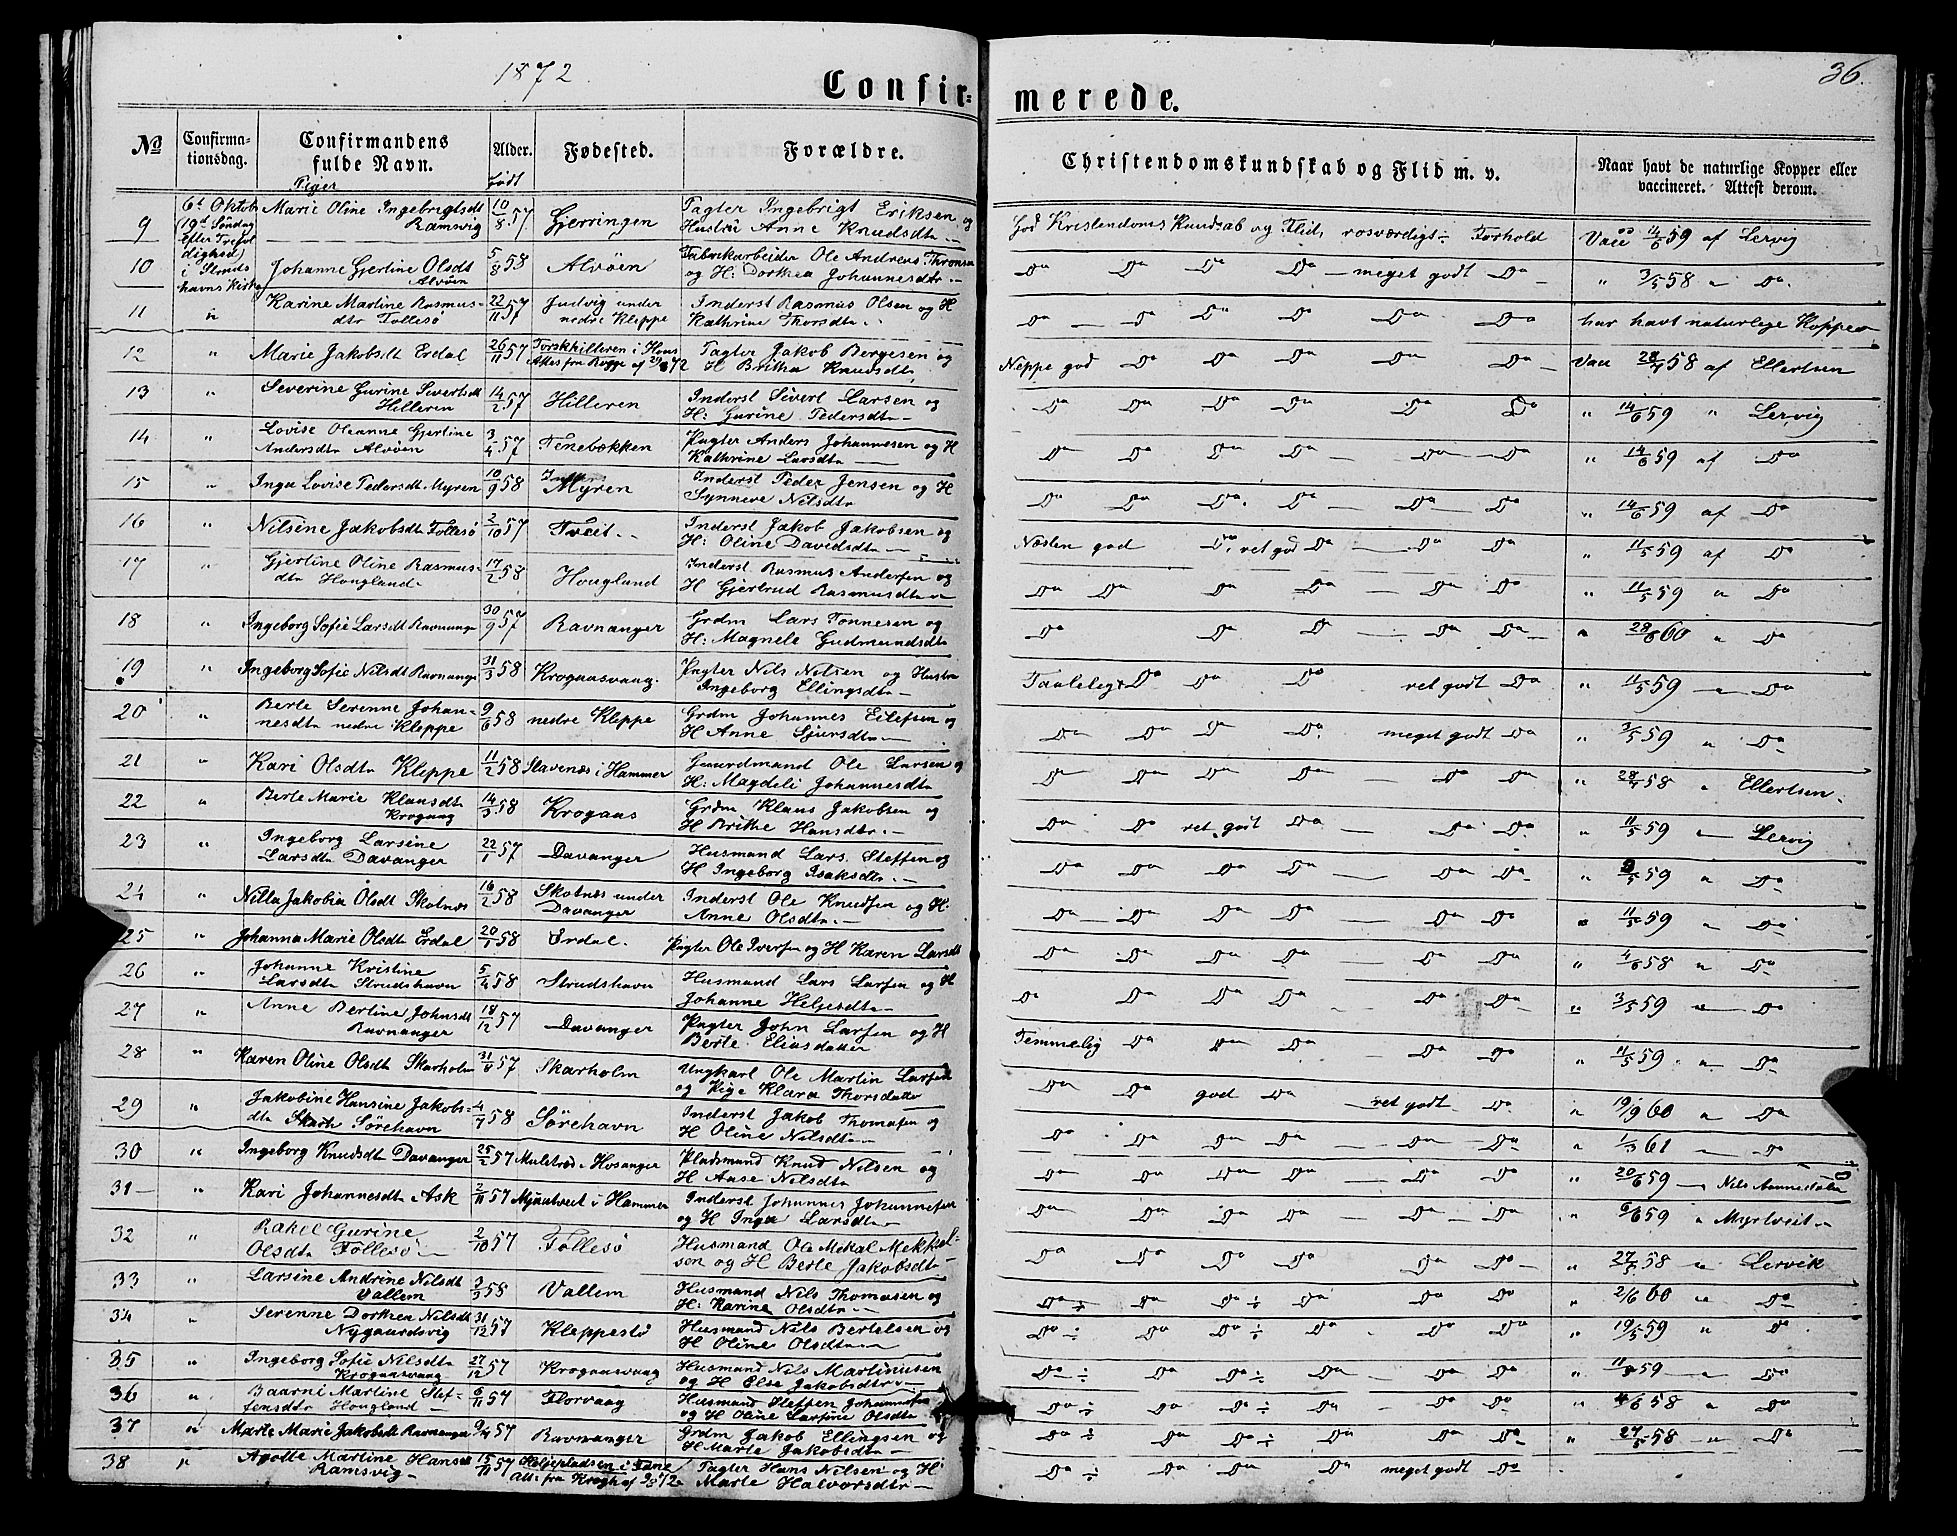 1872
36.
Confir=
merede.
No
Confirma-
tionsdag.
Confirmandens
fulde Navn.
Piger
Alder.
født
Fødested.
Forældre.
Christendomskundskab og Flid m. v.
Naar havt de naturlige Kopper eller
vaccineret. Attest derom.
6t Oktob
(19d Søndag
efter Trefol
dighed)
i Struds
havns Kirke
9 Marie Oline Ingebrigtsdt
Ramsvig
10/8 57 Gjerringen
Pagter Ingebrigt Eriksen og
Hustru Anne Knudsdtr
God Kristendoms Kundsab og Flid, rosværdigt Forhold Vacc 14/6 59 af Lervig
10 Johanne Gjertine Olsdt
Alvøen
5/8 58 Alvøen
Fabrikarbeider Ole Andreas Thronsen
og H: Dorthea Johannesdtr
Do Do Do Do meget godt Do " 3/5 58 " Do
11 " Karine Martine Rasmus-
dtr Follesø
22/11 57 Judvig under
nedre Kleppe
Inderst Rasmus Olsen og H
Kathrine Thorsdtr
Do Do Do Do Do Do har havt naturlige Kopper
12 " Marie Jakobsdt Erdal
26/11 57 Torskhilleren i Hous
Pagter Jakob Børgesen og
H Britha Knudsdtr
Neppe god Do Do Do Do Do Vacc 28/4 58 af Ellertsen
13 " Severine Gurine Sivertsdt
Hilleren
14/2 57 Hilleren
Inderst Sivert Larsen og
H: Gurine Pedersdtr
Do Do Do Do Do Do " 14/6 59 " Lervig
14 " Lovise Oleanne Gjertine
Andersdtr Alvøen
3/4 57 Tenebekken
Pagter Anders Johannesen og H
Kathrine Larsdtr
Do Do Do Do Do Do " 14/6 59 af Do
15 " Inga Lovise Pedersdt. Myren
10/9 58 Myren
Inderst Peder Jensen og H
Synneve Nilsdtr
Do Do Do Do Do Do " 14/6 59 af Do
16 " Nilsine Jakobsdt Follesø
2/10 57 Tveit
Inderst Jakob Jakobsen og
H: Oline Davidsdtr
Næsten god Do ret god Do Do Do " 11/5 59 af Do
17 " Gjertine Oline Rasmus-
dtr Hougland
17/2 58 Hougland
Inderst Rasmus Andersen og
H Gjertrud Rasmusdtr
Do Do Do Do Do Do " 11/5 59 " Do
18 " Ingeborg Sofie Larsdt Ravnanger
30/9 57 Ravnanger
Grdm Lars Tonnesen og
H: Magnele Gudmundsdtr
Do Do Do Do Do " 28/8 60 " Do
19 " Ingeborg Sofie Nilsdt Ravnange
31/3 58 Krogaasvaag
Pagter Nils Nilsen og Hustru
Ingeborg Ellingsdtr
Taalelig Do Do Do ret godt Do " 11/5 59 " Do
20 " Berte Serenne Johan-
nesdtr nedre Kleppe
9/6 58 nedre Kleppe
Grdm Johannes Eilefsen og
H Anne Sjursdtr
Do Do Do Do meget godt Do " 3/5 59 " Do
21 " Kari Olsdtr Kleppe
11/2 58 Slavenes i Hammer
Gaardmand Ole Larsen og
H: Magdeli Johannesdtr
Do Do Do Do Do Do " 28/4 58 " Ellertsen
22 " Berte Marie Klausdtr
Krogaas
14/3 58 Krogaas
Grdm Klaus Jakobsen og
H Brithe Hansdtr
Do Do ret godt Do Do Do " 11/5 59 " Lervig
23 " Ingeborg Larsine
Larsdtr Davanger
22/1 57 Davanger
Husmand Lars Steffen og
H Ingeborg Isaksdtr
Do Do Do Do Do Do " 3/5 59 " Do
24 " Nilla Jakobia Olsdt Skotnes
16/2 58 Skotnes under
Davanger
Inderst Ole Knudsen og H:
Anne Olsdtr
Do Do Do Do Do Do " 11/5 59 " Do
25 " Johanna Marie Olsdtr Erdal
20/1 58 Erdal
Pagter Ole Iversen og H Karen Larsdt
Do Do Do Do Do Do " 4/6 58 " Do
26 " Johanne Kristine
Larsdtr Strudshavn
5/4 58 Strudshavn
Husmand Lars Larsen og H
Johanne Heljesdtr
Do Do Do Do Do Do " 3/5 59 " Do
27 " Anne Bertine Johnsdt
Ravnanger
18/12 57 Davanger
Pagter John Larsen og H
Berte Eliasdatter
Temmelig Do Do Do Do Do " 11/5 59 " Do
28 " Karen Oline Olsdt Skarholm
31/8 57 Skarholm
Ungkarl Ole Martin Larsen
og Pige Klara Thorsdatter
Do Do god Do ret godt Do " 19/9 60 " Do
29 " Jakobine Hansine Jakobs-
dtr Skarh Sørehavn
4/7 58 Sørehavn
Inderst Jakob Thomasen og
H Oline Nilsdtr
Do Do Do Do Do Do " 1/3 61 " Do
30 " Ingeborg Knudsdt Davanger
25/2 57 Mulstrød i Hosanger
Pladsmand Knud Nilsen og
H Aase Nilsdtr
Do Do Do Do Do Do " 20/6 59 " Nils Aannestølen
31 " Kari Johannesdtr Ask
2/11 57 Mjaatveit i Hammer
Inderst Johannes Johannesen
og H Inga Larsdtr
Do Do Do Do Do Do " 6/6 59 " Myrtveit
32 " Rakel Gurine
Olsdtr Follesø
2/10 57 Follesø
Husmand Ole Mikal Mikkel-
sen og H Berte Jakobsdtr
Do Do Do Do Do Do " 27/5 58 " Lervik
33 " Larsine Andrine Nilsdt
Vallem
3/3 58 Vallem
Husmand Nils Thomasen og
H: Karine Olsdtr
Do ÷ Do Do ÷ Do Do Do " 2/6 60 " Do
34 " Serenne Dorthea Nilsdt
Nygaardsvig
31/12 57 Kleppestø
Husmand Nils Bertelsen og
H Oline Olsdtr
Do ÷ Do Do ÷ Do Do Do " 19/5 59 " Do
35 " Ingeborg Sofie Nilsdtr
Krogaasvaag
27/12 57 Krogaasvaag
Husmand Nils Martinusen
og H Else Jakobsdtr
Do ÷ Do Do ÷ Do Do Do " 11/5 59 " Do
36 " Baarni Martine Stef-
fensdtr Hougland
6/11 57 Florvaag
Husmand Steffen Johannesen
og H Oline Larsine Olsdtr
Do ÷ Do Do ÷ Do Do " 4/6 58 " Do
37 " Marte Marie Jakobsdt Ravnanger
57 Ravnanger
Grdm Jakob Ellingsen og
H Marte Jakobsdtr
Do ÷ Do Do ÷ Do Do Do " 27/5 58 " Do
38 " Agotte Martine Hansd
Ramsvig
15/11 57 Heljepladsen i Fane
Att: fra Krogh af
Pagter Hans Nilsen og H
Marte Halvorsdtr
Do ÷ Do Do Do meget godt Do